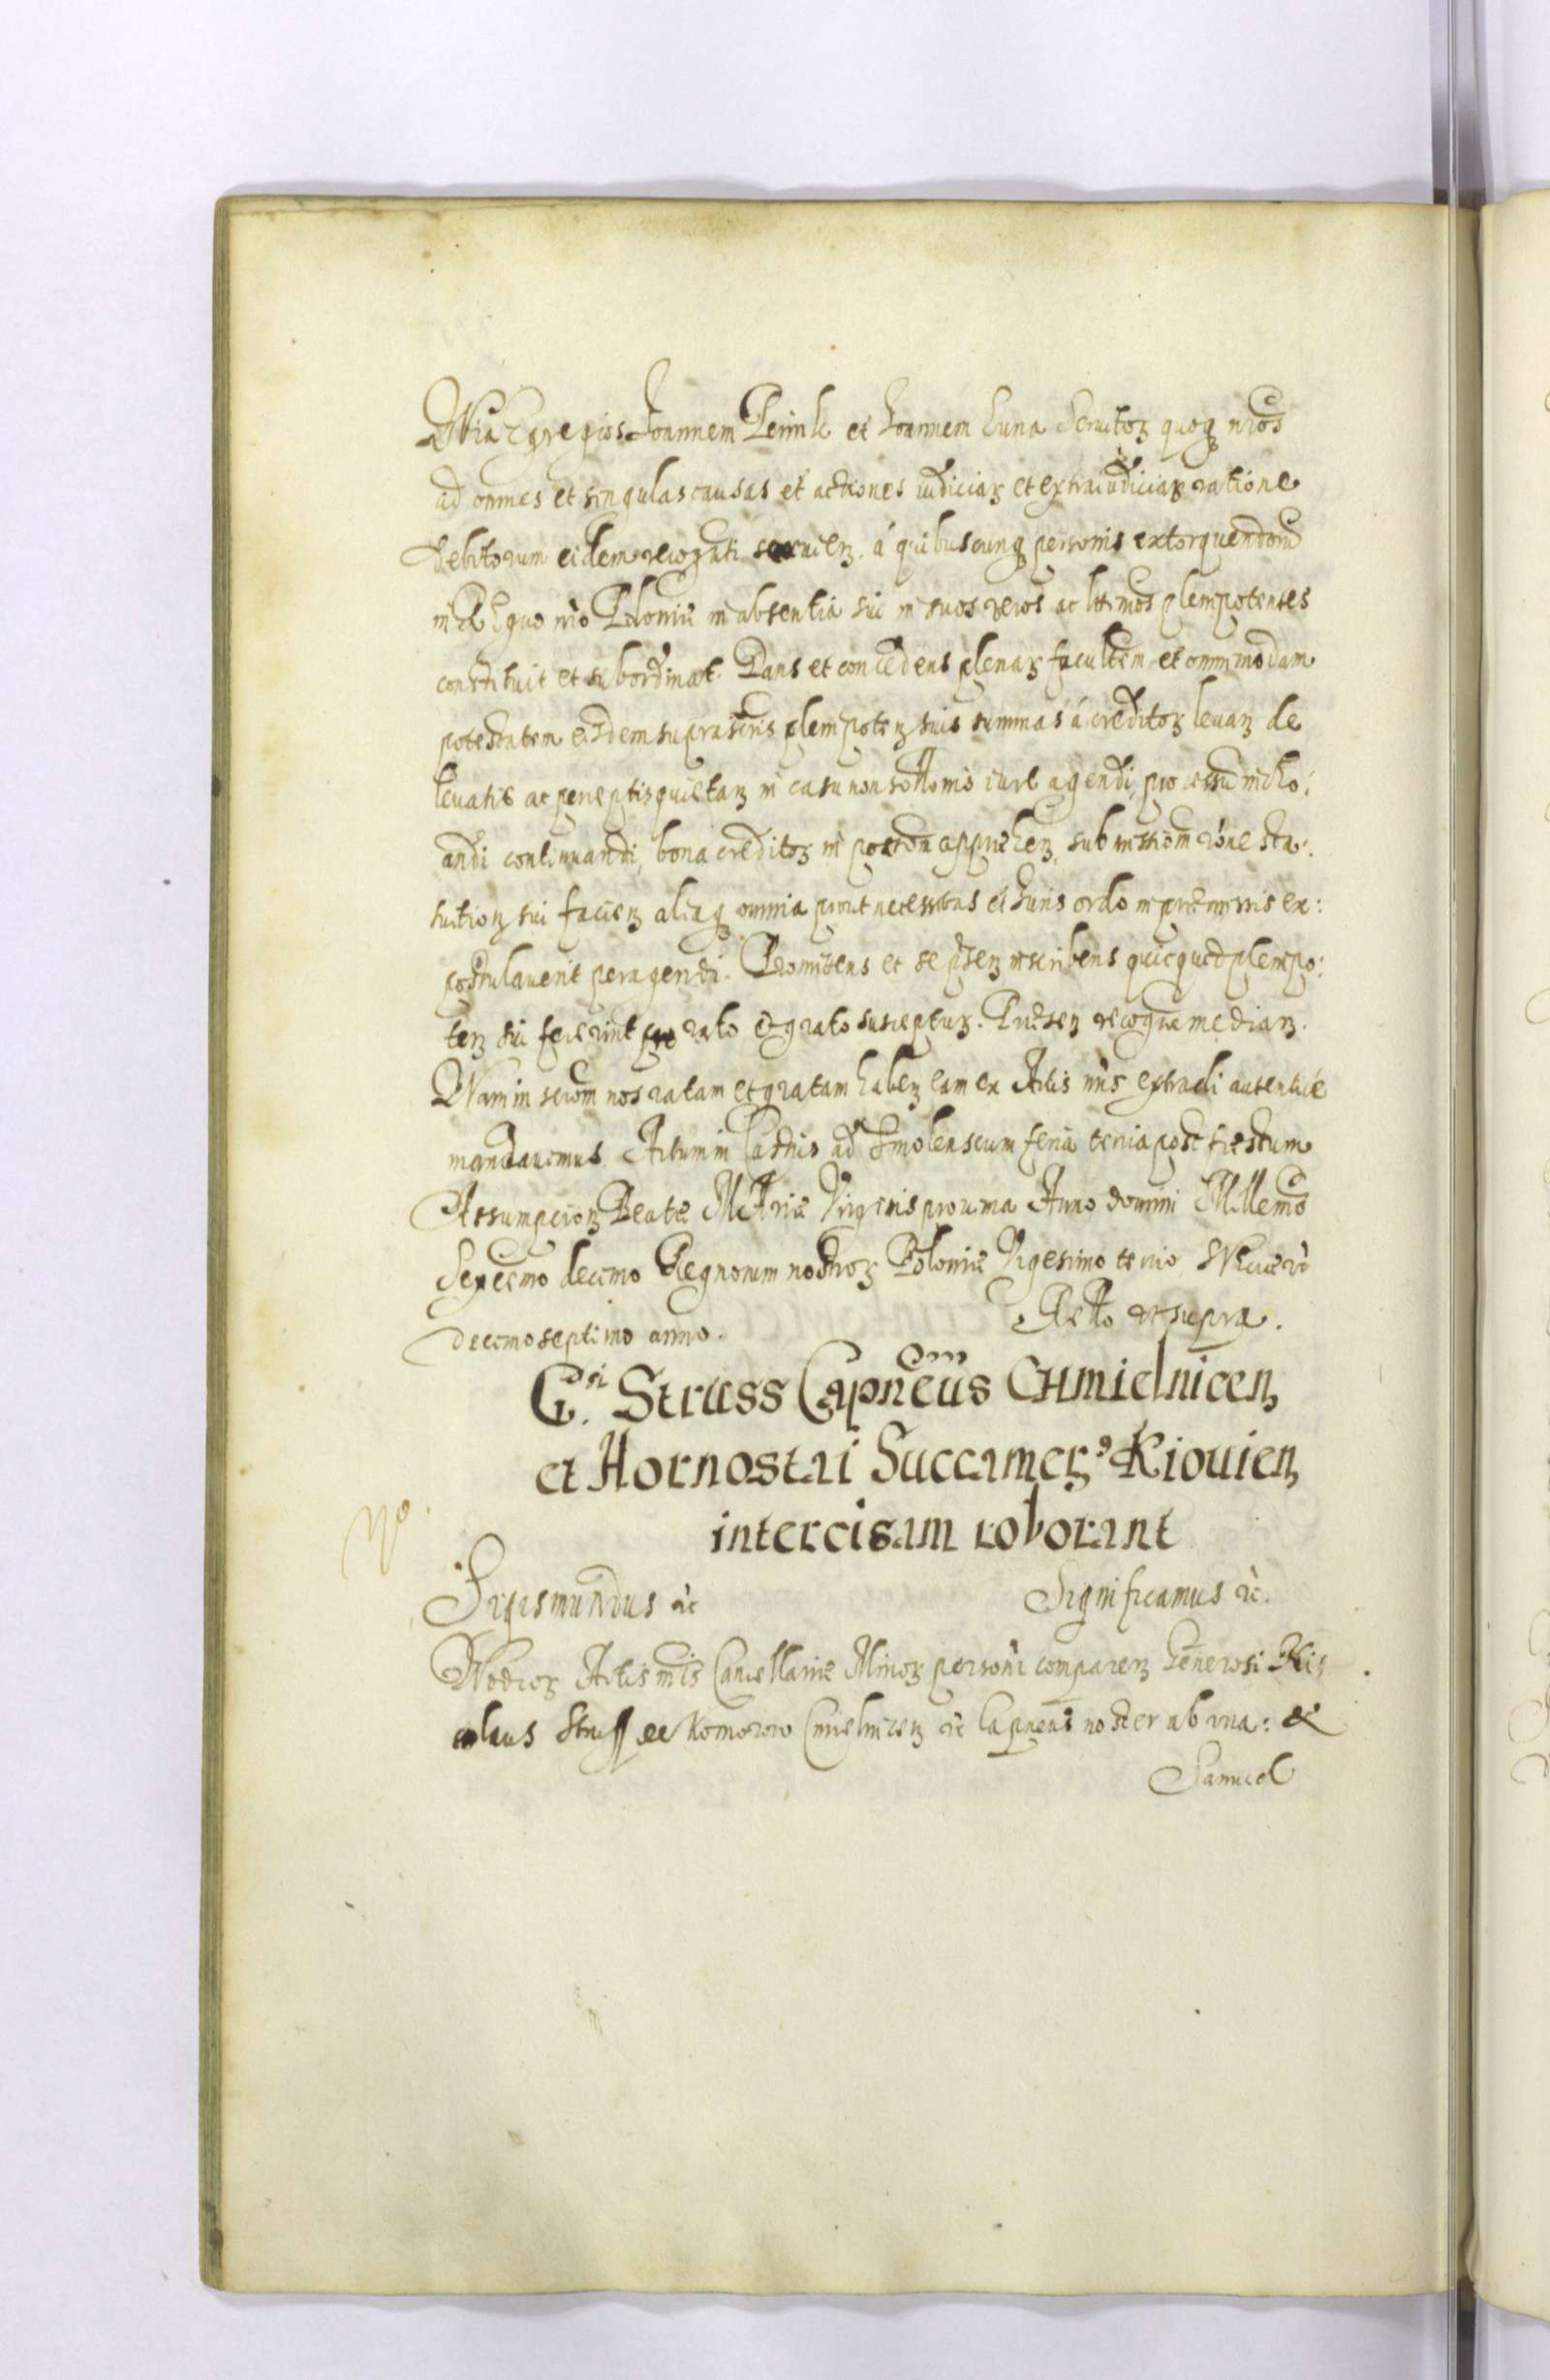 Egregios Joannem et Joannem Luna Seruitoꝫ quoqꝫ nros
ad omnes et singulas causas et actiones iudiciaꝫ et extraiudiciaꝫ ratione
debitorum eidem recognti à quibuscunqꝫ personis extorquendorū
in Regno nr̄o Poloniæ in absentia sui in suos veros ac lttimos plenipotentes
constituit et subordinat. Dans et concedens plenaꝫ facultem et omnimodam
potestatem eisdem suprascris plenipoteꝫ suis summas à creditoꝫ leuaꝫ de
leuatis ac perceptis quietaꝫ in casu non soltionis iure agendi, processū incho:
andi continuandi, bona creditoꝫ in apprehenꝫ, subinssiom rōne sta:
tutioꝫ sui facienꝫ aliaqꝫ omnia prout necessitas et Iuris ordo in præmissis ex:
postulauerit peragendi. Promittens et se pñtenꝫ inscribens quicquid plenipo:
tenꝫ sui fecerint rato et grato suscepturꝫ. Præsenꝫ recogne medianꝫ.
Nam in serom nos ratam et gratam habenꝫ eam ex Actis nr̄is extradi autentice
mandauimus. Actum in Castris ad Smolenscum feria tertia post Festum
Assumpcionꝫ Beatæ MAriæ Virginis proxima Anno Domini Millemo
Sexcsmo decimo Regnorum nostroꝫ Poloniæ Vigesimo tertio Sueciæ rc
decimoseptimo anno. Relto vt supra.
Gsi. Struss Capneus Chmielnicenꝫ
et Hornostai Succamerꝫ Kiouienꝫ
intercisam roborant
Sigismundus rc Significamus rc.
Actis nr̄is Cancellariæ Minoꝫ personr comparenꝫ Generosi Ni
colaus Struss de Komorow Cmielnicenꝫ rc Capneus noster ab vna: &
Samuel